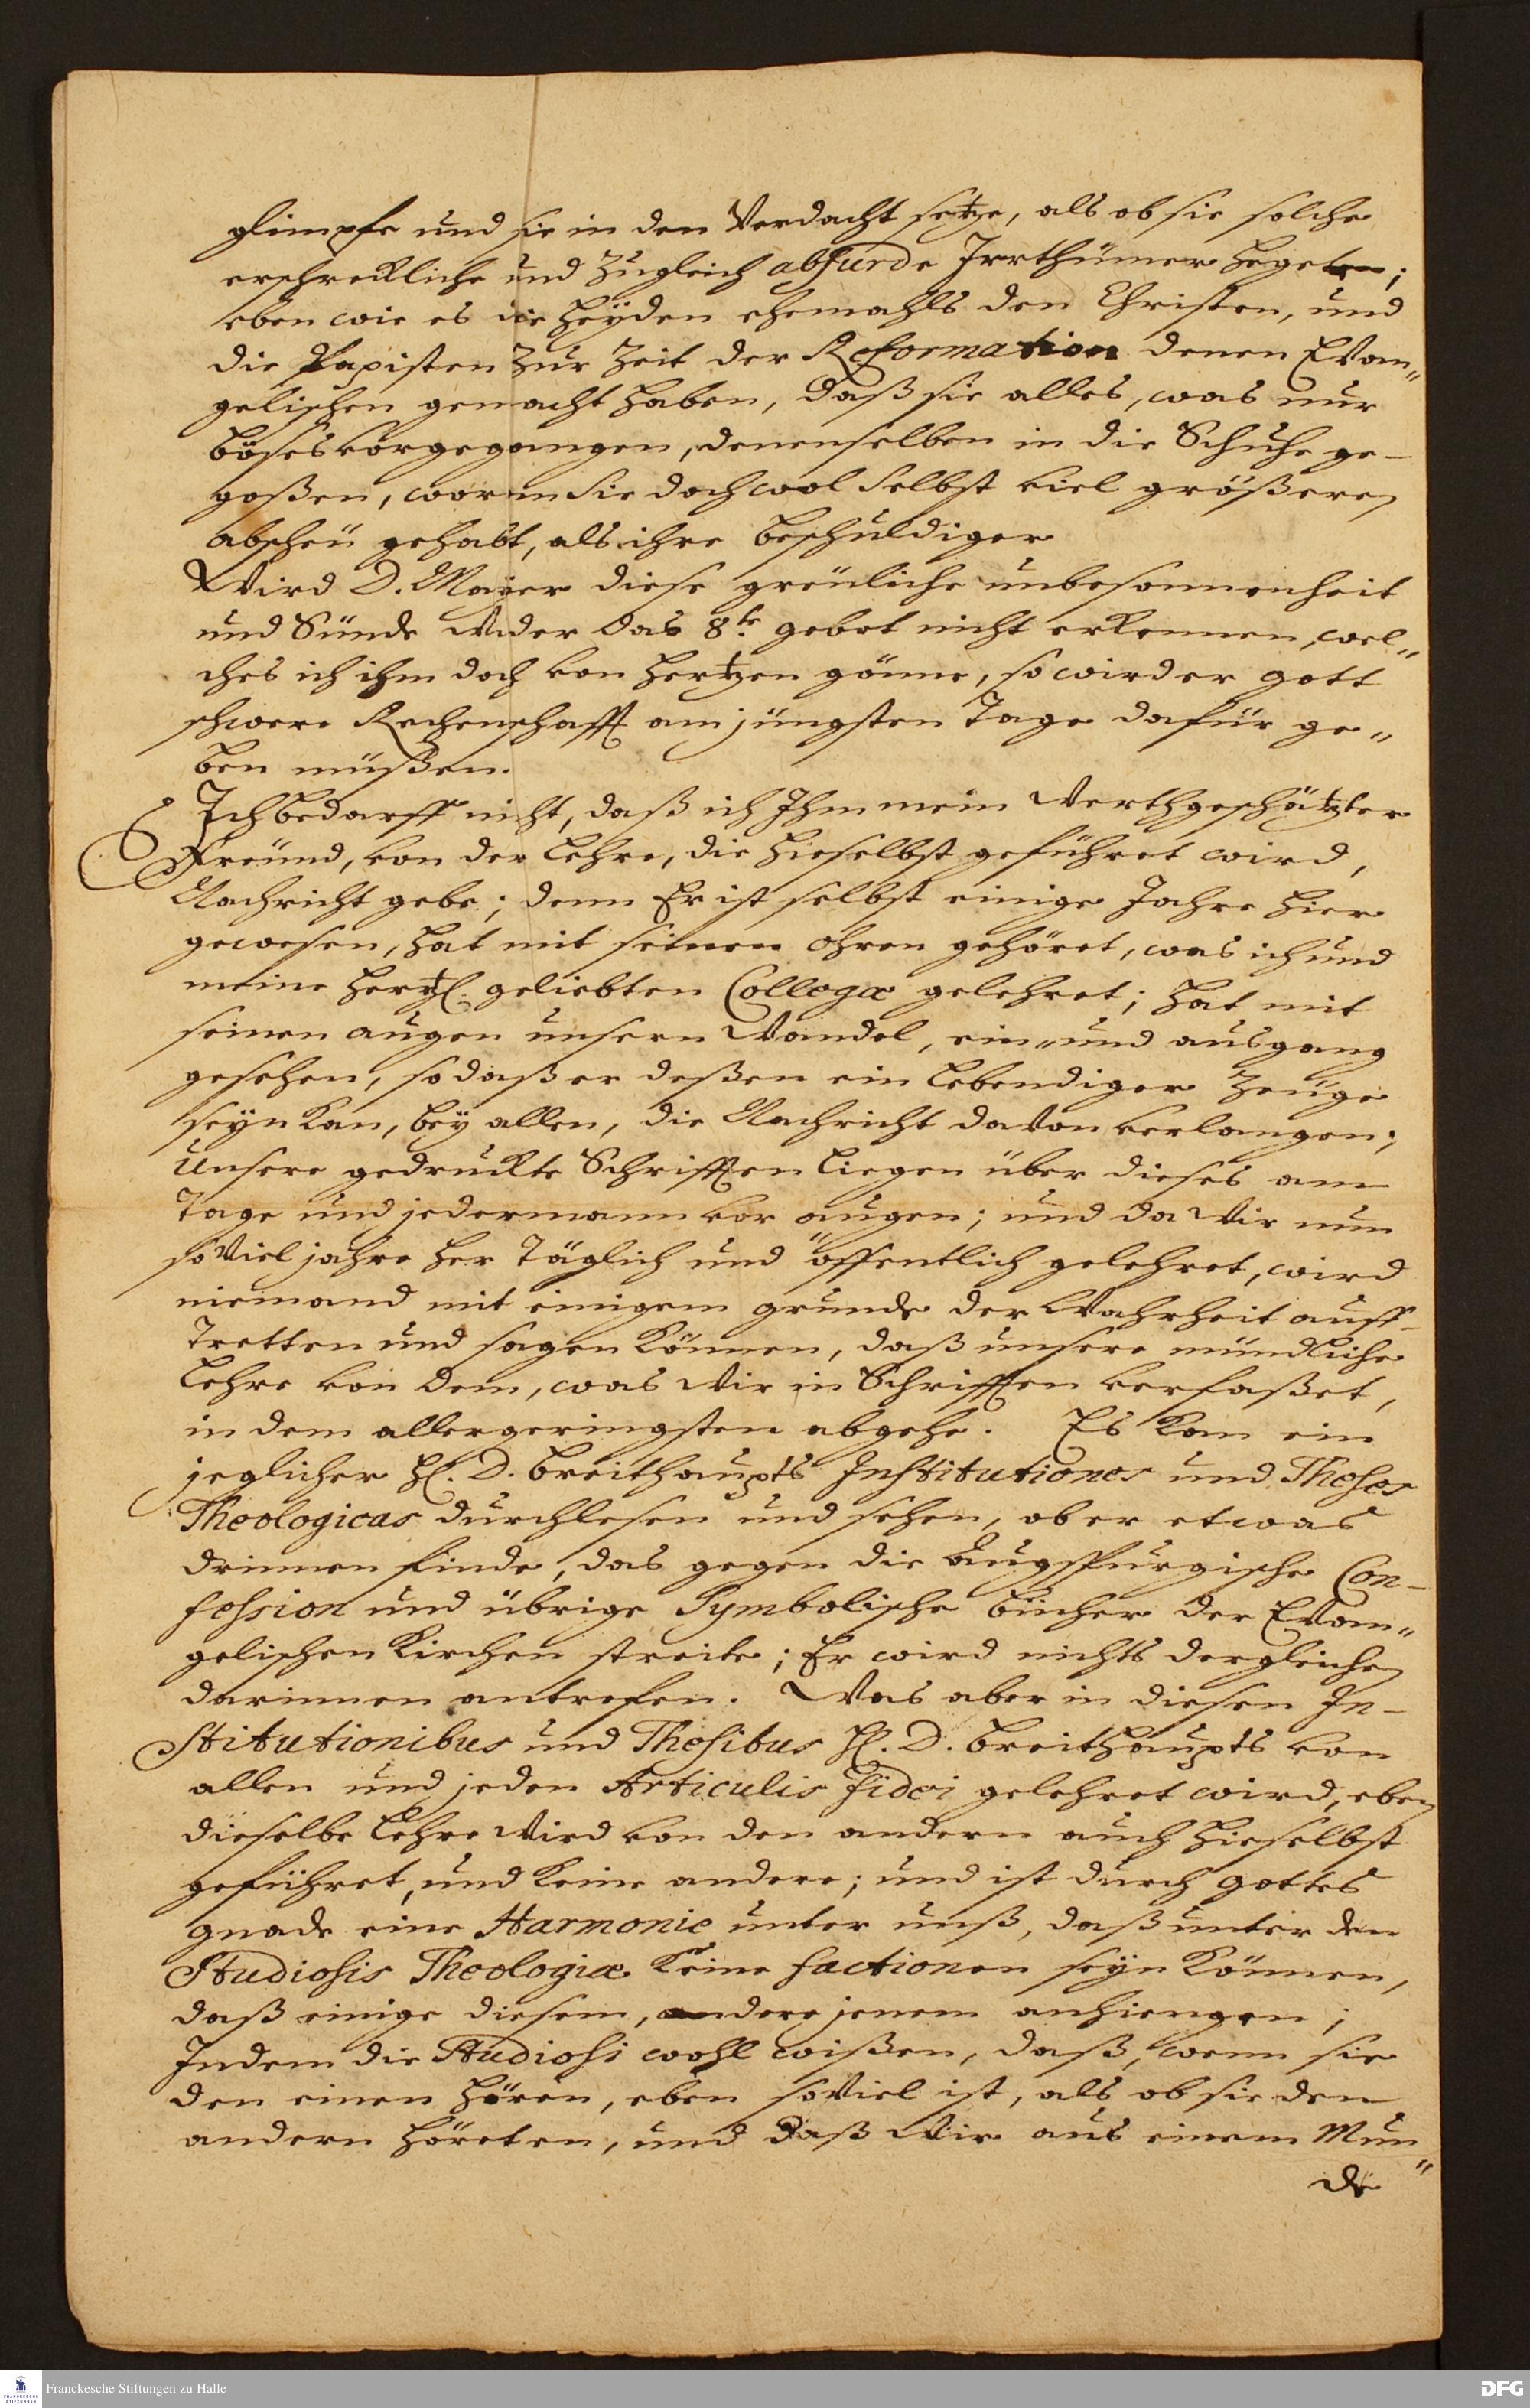 glimpfe und sie in den Verdacht setze, als ob sie solche
erschreckliche und zugleich absurde Irrthümer hegeten;
eben wie es die Heyden ehemahls den Christen, und
die Papisten zur Zeit der Reformation denen Evan„
gelischen gemacht haben, daß sie alles, was nur
böses vorgegangen, denenselben in die Schuhe ge-
goßen, worin sie doch wol selbst viel größeren
abscheü gehabt, als ihre beschuldiger
Wird D. Mayer diese greüliche unbesonnenheit
und Sünde wider das 8te gebot nicht erkennen, wel„
ches ich ihm doch von Hertzen gönne, so wird er Gott
schwere Rechenschafft am jüngsten Tage dafür ge„
ben müßen.
Ich bedarff nicht, daß ich Ihm mein werthgeschätzter
Freünd, von der Lehre, die hieselbst geführet wird,
Nachricht gebe; denn Er ist selbst einige Jahre hier
gewesen, hat mit seinen ohren gehöret, was ich und
meine Hertzl. geliebten Collegæ gelehret; hat mit
seinen augen unsern Wandel, ein„ und ausgang
gesehen, so daß er deßen ein lebendiger Zeüge
seyn kan, bey allen, die Nachricht davon verlangen;
Unsere gedruckte Schrifften liegen über dieses am
Tage und jedermann vor augen; und da wir nun
so viel jahre her täglich und öffentlich gelehret, wird
niemand mit einigem grunde der Wahrheit auff-
tretten und sagen können, daß unsere mündliche
Lehre von dem, was wir in Schrifften verfaßet,
in dem allergeringsten abgehe. Es kan ein
jeglicher H. D. Breithaupts Institutiones und Theses
Theologicas durchlesen und sehen, ob er etwas
drinnen finde, das gegen die Augspurgische Con-
fession und übrige Symbolische bücher der Evan„
gelischen Kirchen streite; Er wird nichts dergleichen
darinnen antrefen. Was aber in diesen In-
stitutionibus und Thesibus H. D. Breithaupts von
allen und jeden Articulis fidei gelehret wird, eben
dieselbe Lehre wird von den andern auch hieselbst
geführet, und keine andere; und ist durch Gottes
gnade eine Harmonie unter unß, daß unter den
Studiosis Theologiæ keine factionen seyn können,
daß einige diesem, andere jenem anhiengen;
Indem die Studiosi wohl wißen, daß, wenn sie
den einen hören, eben so viel ist, als ob sie den
andern höreten, und daß wir aus einem Mun„
de
Franckesche Stiftungen zu Halle
DFG